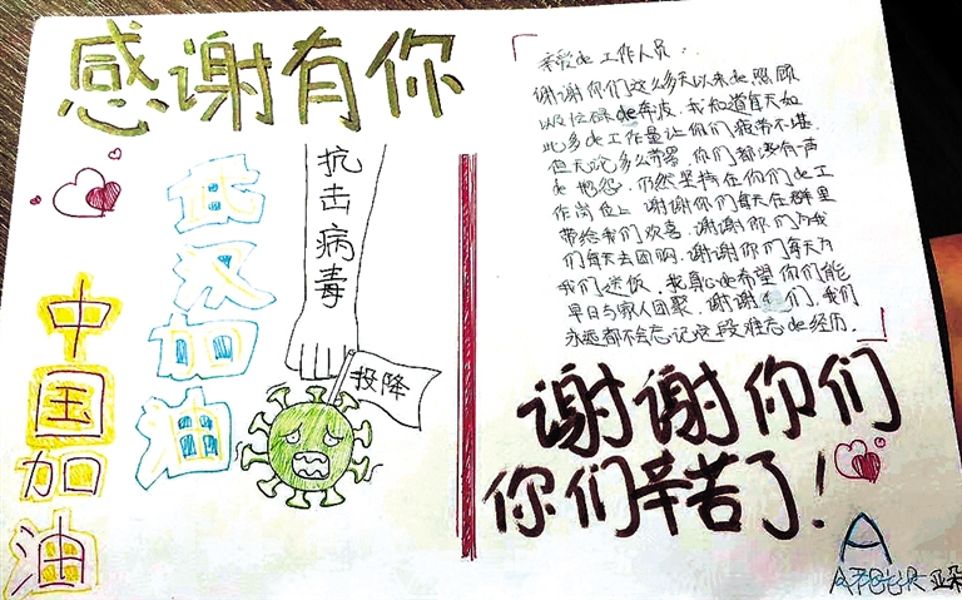 感谢有你
武汉加油
中国加油
抗击病毒
投降
亲爱de工作人员：
谢谢你们这么多天以来de照顾
以及忙碌de奔波，我知道每天如
此多de工作量让你们疲劳不堪，
但无论多么劳累，你们都没有一声
de抱怨，仍然坚持在你们de工
作岗位上，谢谢你们每天在群里
带给我们欢喜，谢谢你们为我
们每天去团购，谢谢你们每天为
我们送饭，我真心de希望你们能
早日与家人团聚，谢谢你们，我们
永远都不会忘记这段难忘de经历。
谢谢你们
你们辛苦了！
A
亚朵